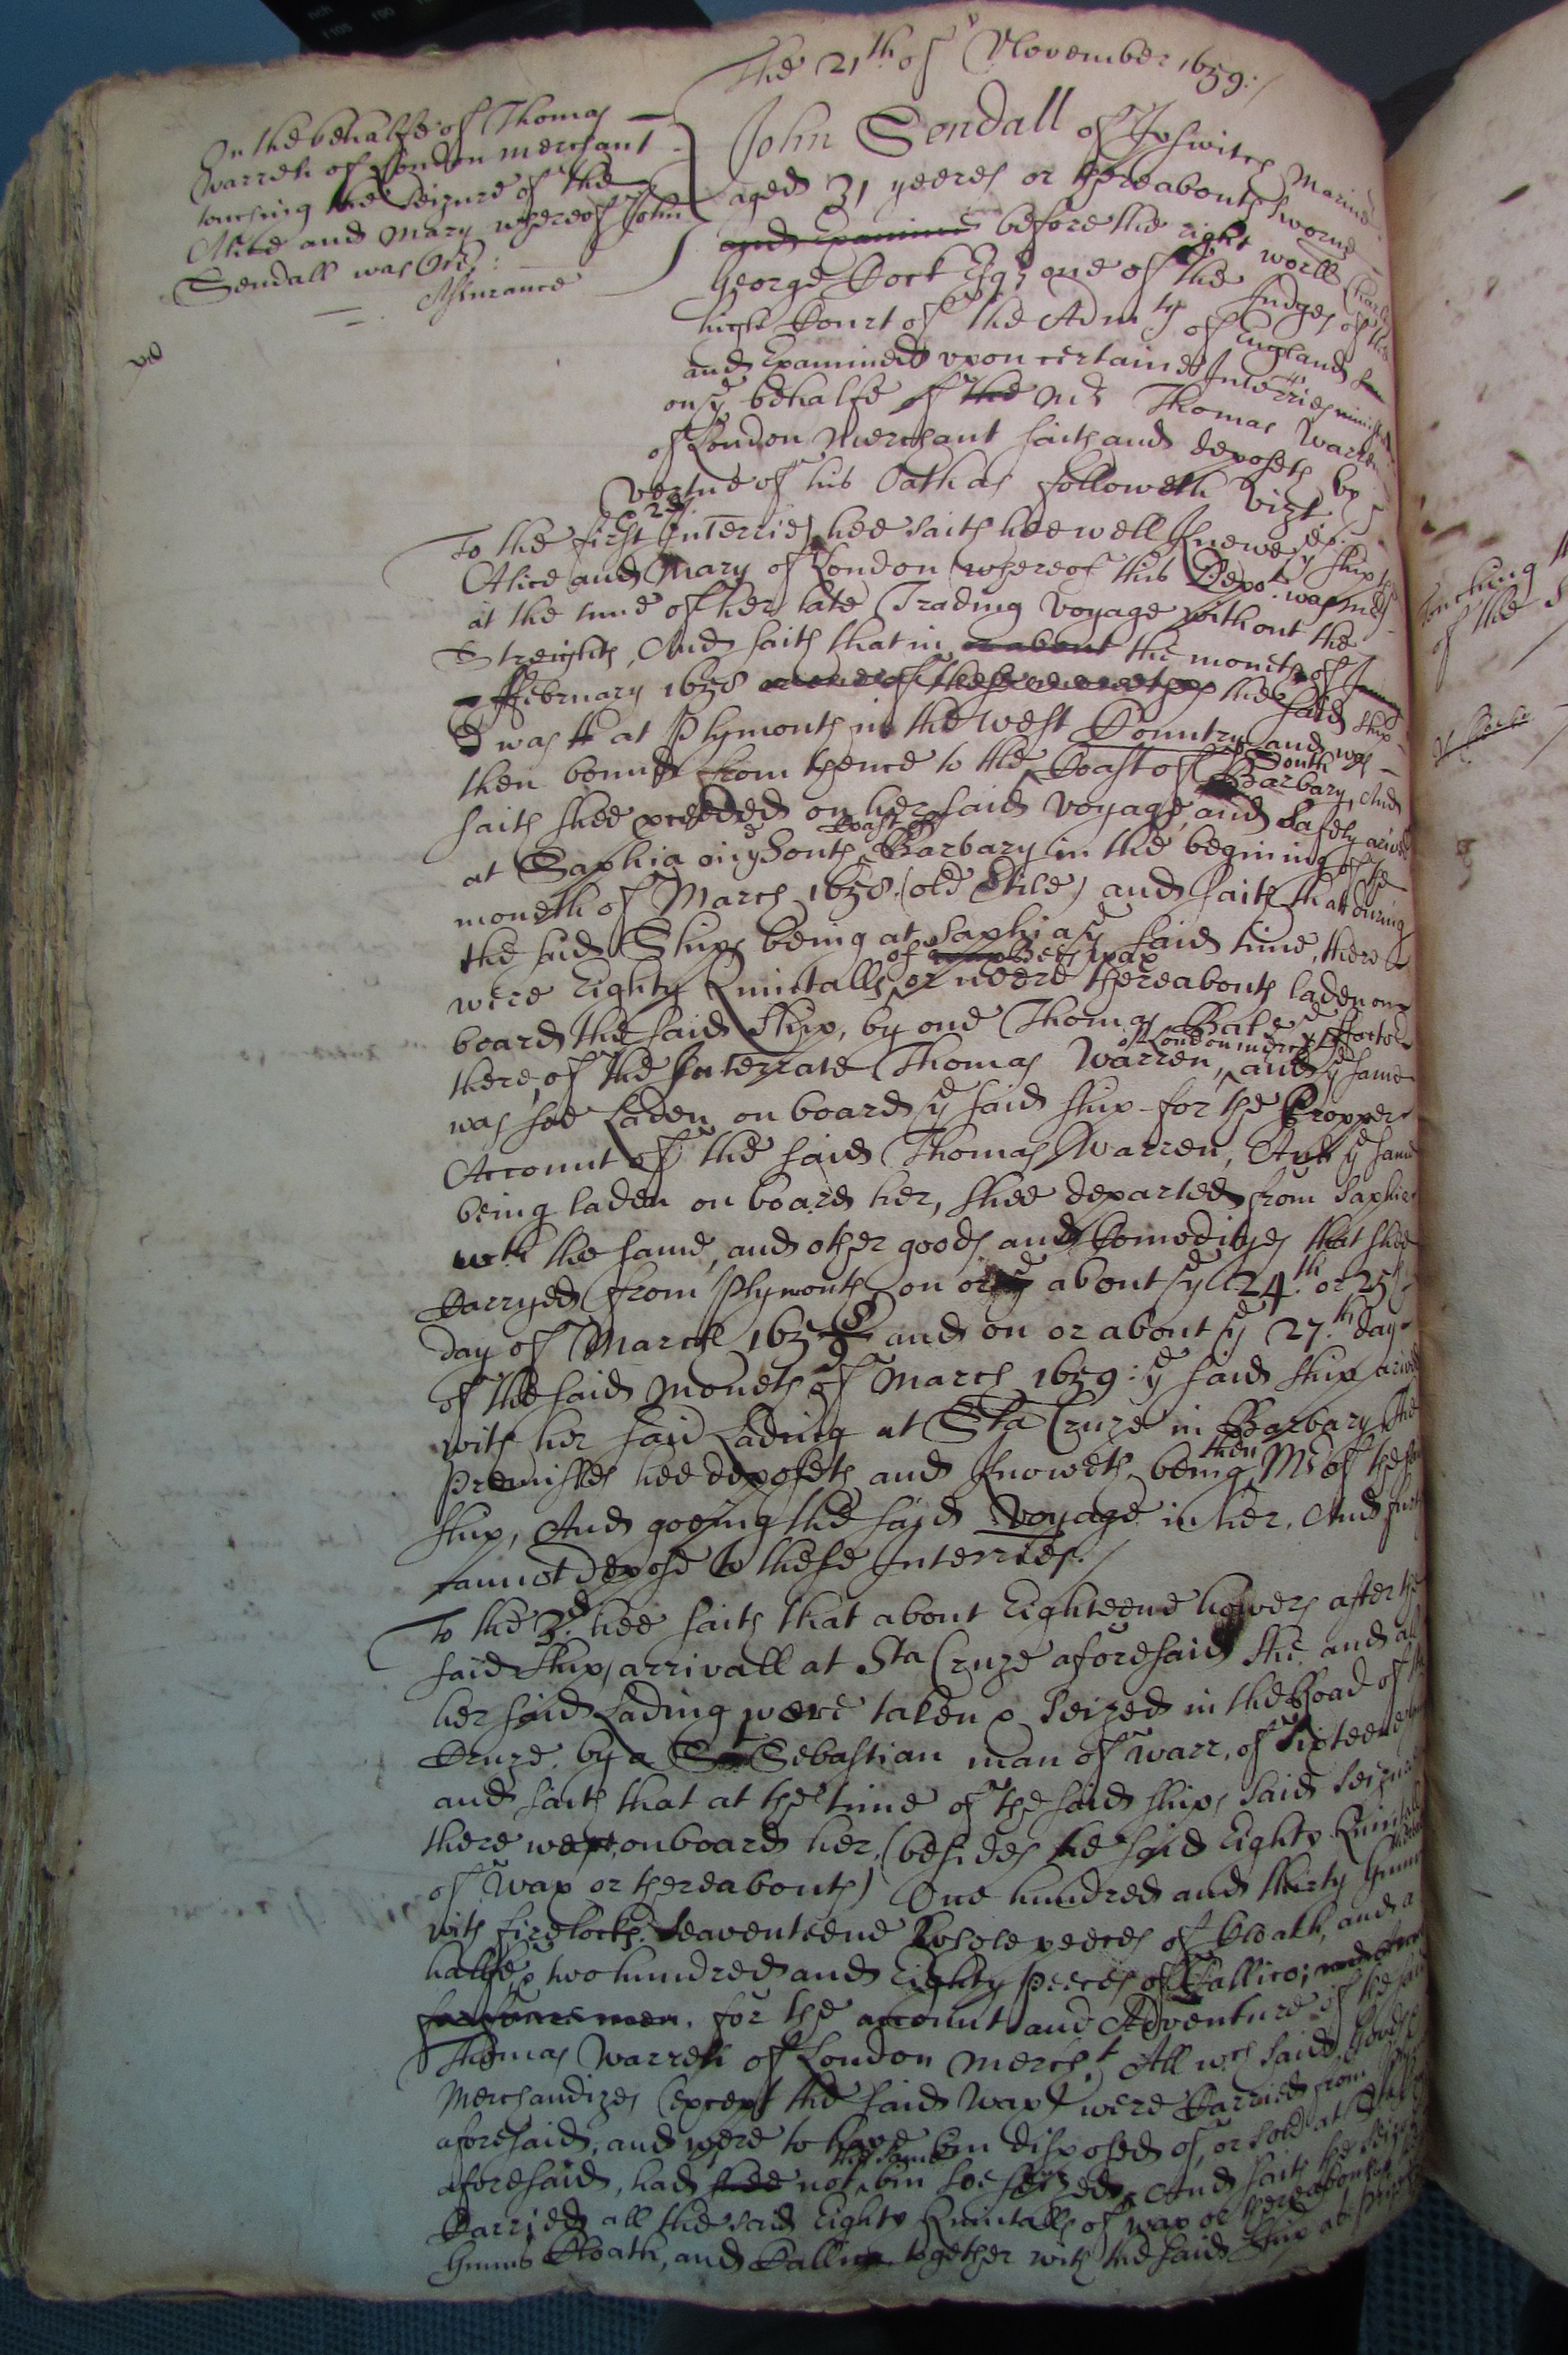 The 21th of November 1659:/
On the behalfe of Thomas
Warren of London merchant
touching the Seizure of the
Alice and Mary whereof John
Sendall was Mr:
Assurance
John Sendall of Ipswitch Marine
aged 31 yeeres or thereabouts sworne
and Examined before the right worll
George Cock Esqr one of the Judges of the
high Court of the Admty of England
and Examined upon certaine Interries
on ye behalfe of the Mr Thomas Warren
of London Merchant saith and deposeth by
vertue of his Oath as followeth vizt
To the first 2d Interries hee saith hee well knewe ye ship the
Alice and Mary of London (whereof this Depot was Mr)
at the time of her late Trading Voyage without the
Streights, And saith that in or about the moneth of
ffebruary 1658 the said ship
was at Plymouth in the West Country and was
then bound from thence to the South Coast of Barbary, And
saith shee preeded on her said Voyage, and safely arived
at Saphia on ye South Coast of Barbary in the begining of the
moneth of March 1658 (old Stile) and saith that during
the said Ships being at Saphia ye said time, there
were Eighty Quintalls of Bees wax or neere thereabouts laden on
board the said Ship, by one Thomas Bale ye ffactor
there, of the Interrate Thomas Warren of London merct, and ye same
was soe Laden on board ye said ship for the Propper
Account of the said Thomas Warren, And ye same
being laden on board her, shee departed from Saphia
wth the same, and other goods and Comodityes that shee
Carryed from Plymouth, on or about ye 24th or 25th
day of March 1658/9 and on or about ye 27th day
of the said moneth of March 1659: ye said ship arived
with her said Lading at Sta Cruze in Barbary, The
Premisses hee deposeth and knoweth being then Mr of the said
ship, And goeing the said Voyage in her. And
cannot depose to these Interries./
To the 3d hee saith that about Eighteene howers after the
said ships arrivall at Sta Cruze aforesaid she and all
her said Lading were taken & seized in the Road of
Cruze by a St Sebastian man of warr, of Sixteene
and saith that at the time of the said ships said seizure
there were onboard her, (besides the said Eighty Quintalls
of Wax or thereabouts) One hundred and thirty Gunns
with firelocks, Seaventeene whole peeces of Cloath, and a
halfe, & two hundred and Eighty peeces of Callico;
for the account and Adventure of the said
Thomas Warren of London mercht, All wch said goods
Merchandizes (except the said Wax) were Carried from
aforesaid, and were to have bin disposed of, or sold at
aforesaid, had shee the same not bin soe seized, And saith the
Carried all the said Eighty Quintalls of wax or thereabouts
Gunns Cloath, and Callico together with the said Ship as